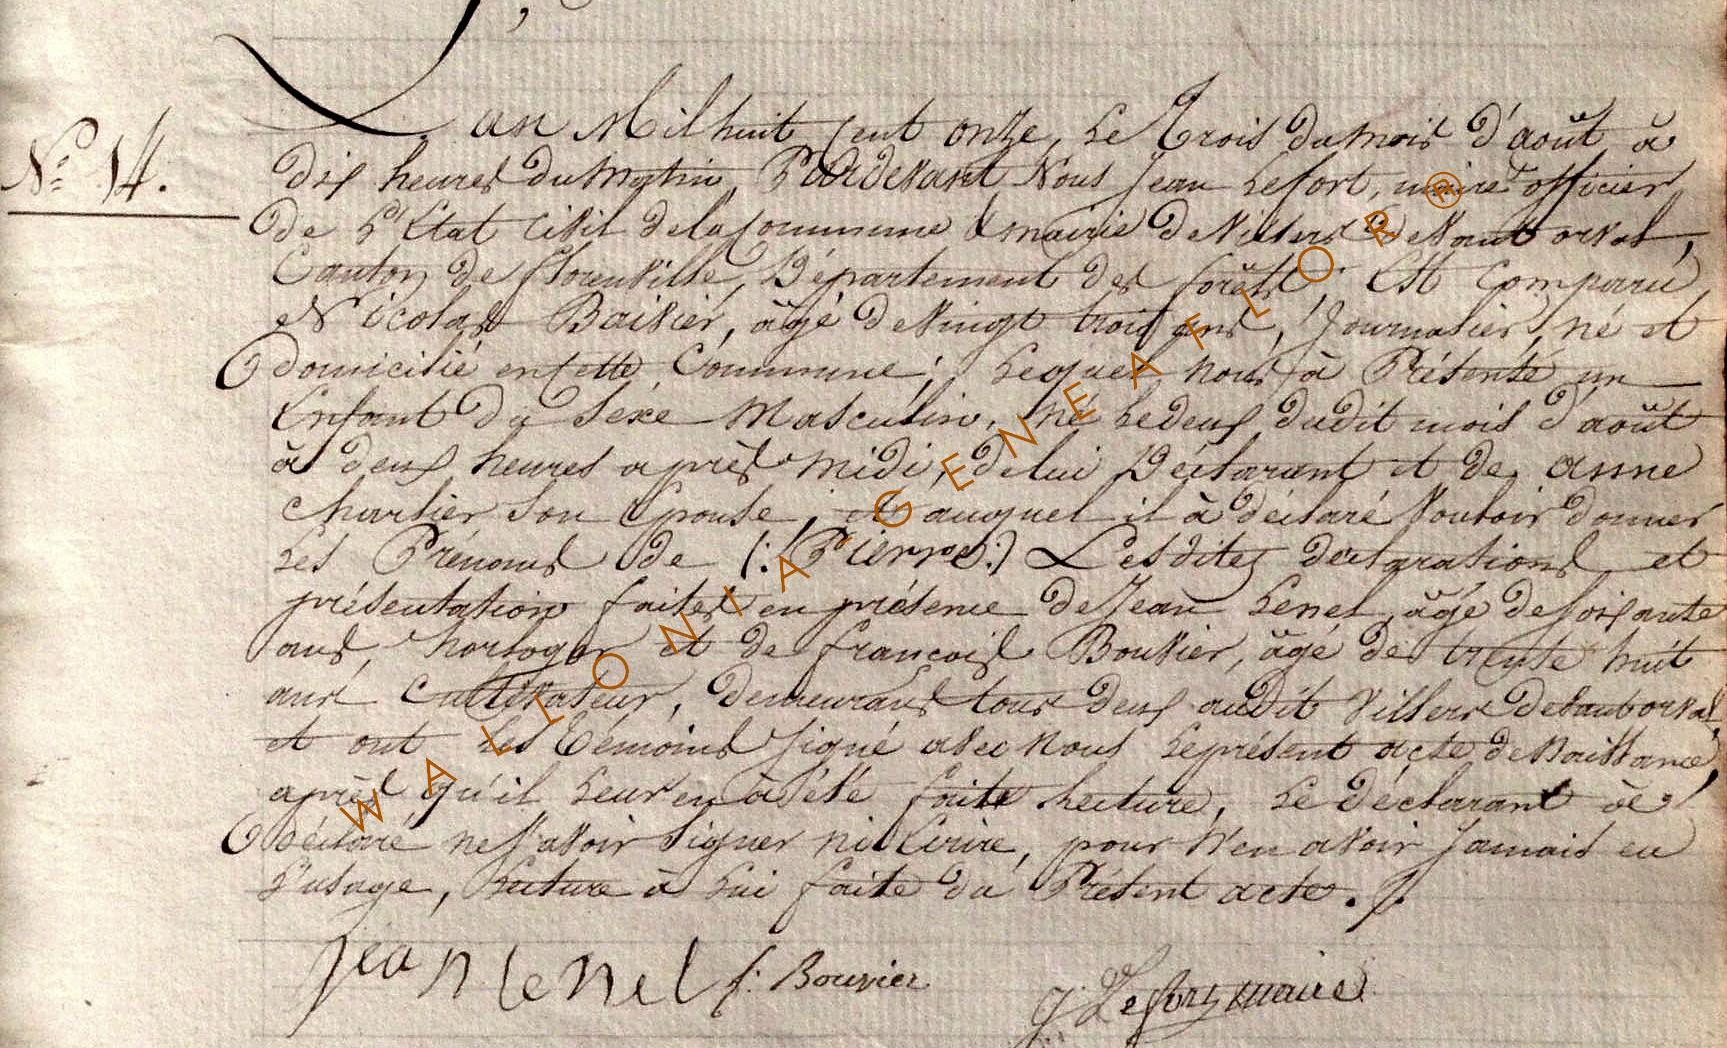 N.º 14.
L'an Mil huit Cent onze, Le Trois du mois d'août à
dix heures du Matin, Pardevant Nous Jean Lefort, maire officier
de L'Etat Civil de la Commune & mairie de Villers devant orval,
Canton de florenville, Département des forêts, Est Comparu
Nicolas Baivier, âgé de vingt trois ans, Journalier, né et
domicilié en Cette Commune; Lequel nous à Présenté un
Enfant du Sexe Masculin, né Le deux dudit mois d'août
à deux heures après midi, de lui Déclarant et de anne
Charlier Son Epouse, et auquel il à déclaré Vouloir donner
Les Prénoms de (: Pierre :) Lesdites déclarations et
présentation faites en présence de Jean Lenel, âgé de soixante
ans, horloger et de françois Bouvier, âgé de trente huit
ans Cultivateur, demeurans tous deux audit Villers devant orval,
et ont Les Témoins Signé avec Nous Le présent acte de Naissance,
après qu'il Leur en à été faite Lecture, Le Déclarant à
déclaré ne Savoir Signer ni Ecrire, pour N'en avoir Jamais eu
L'usage, Lecture à Lui faite du Présent acte. /.
jean lenel f: Bouvier
J: Lefort maire
WALLONIA GENEAFLOR®